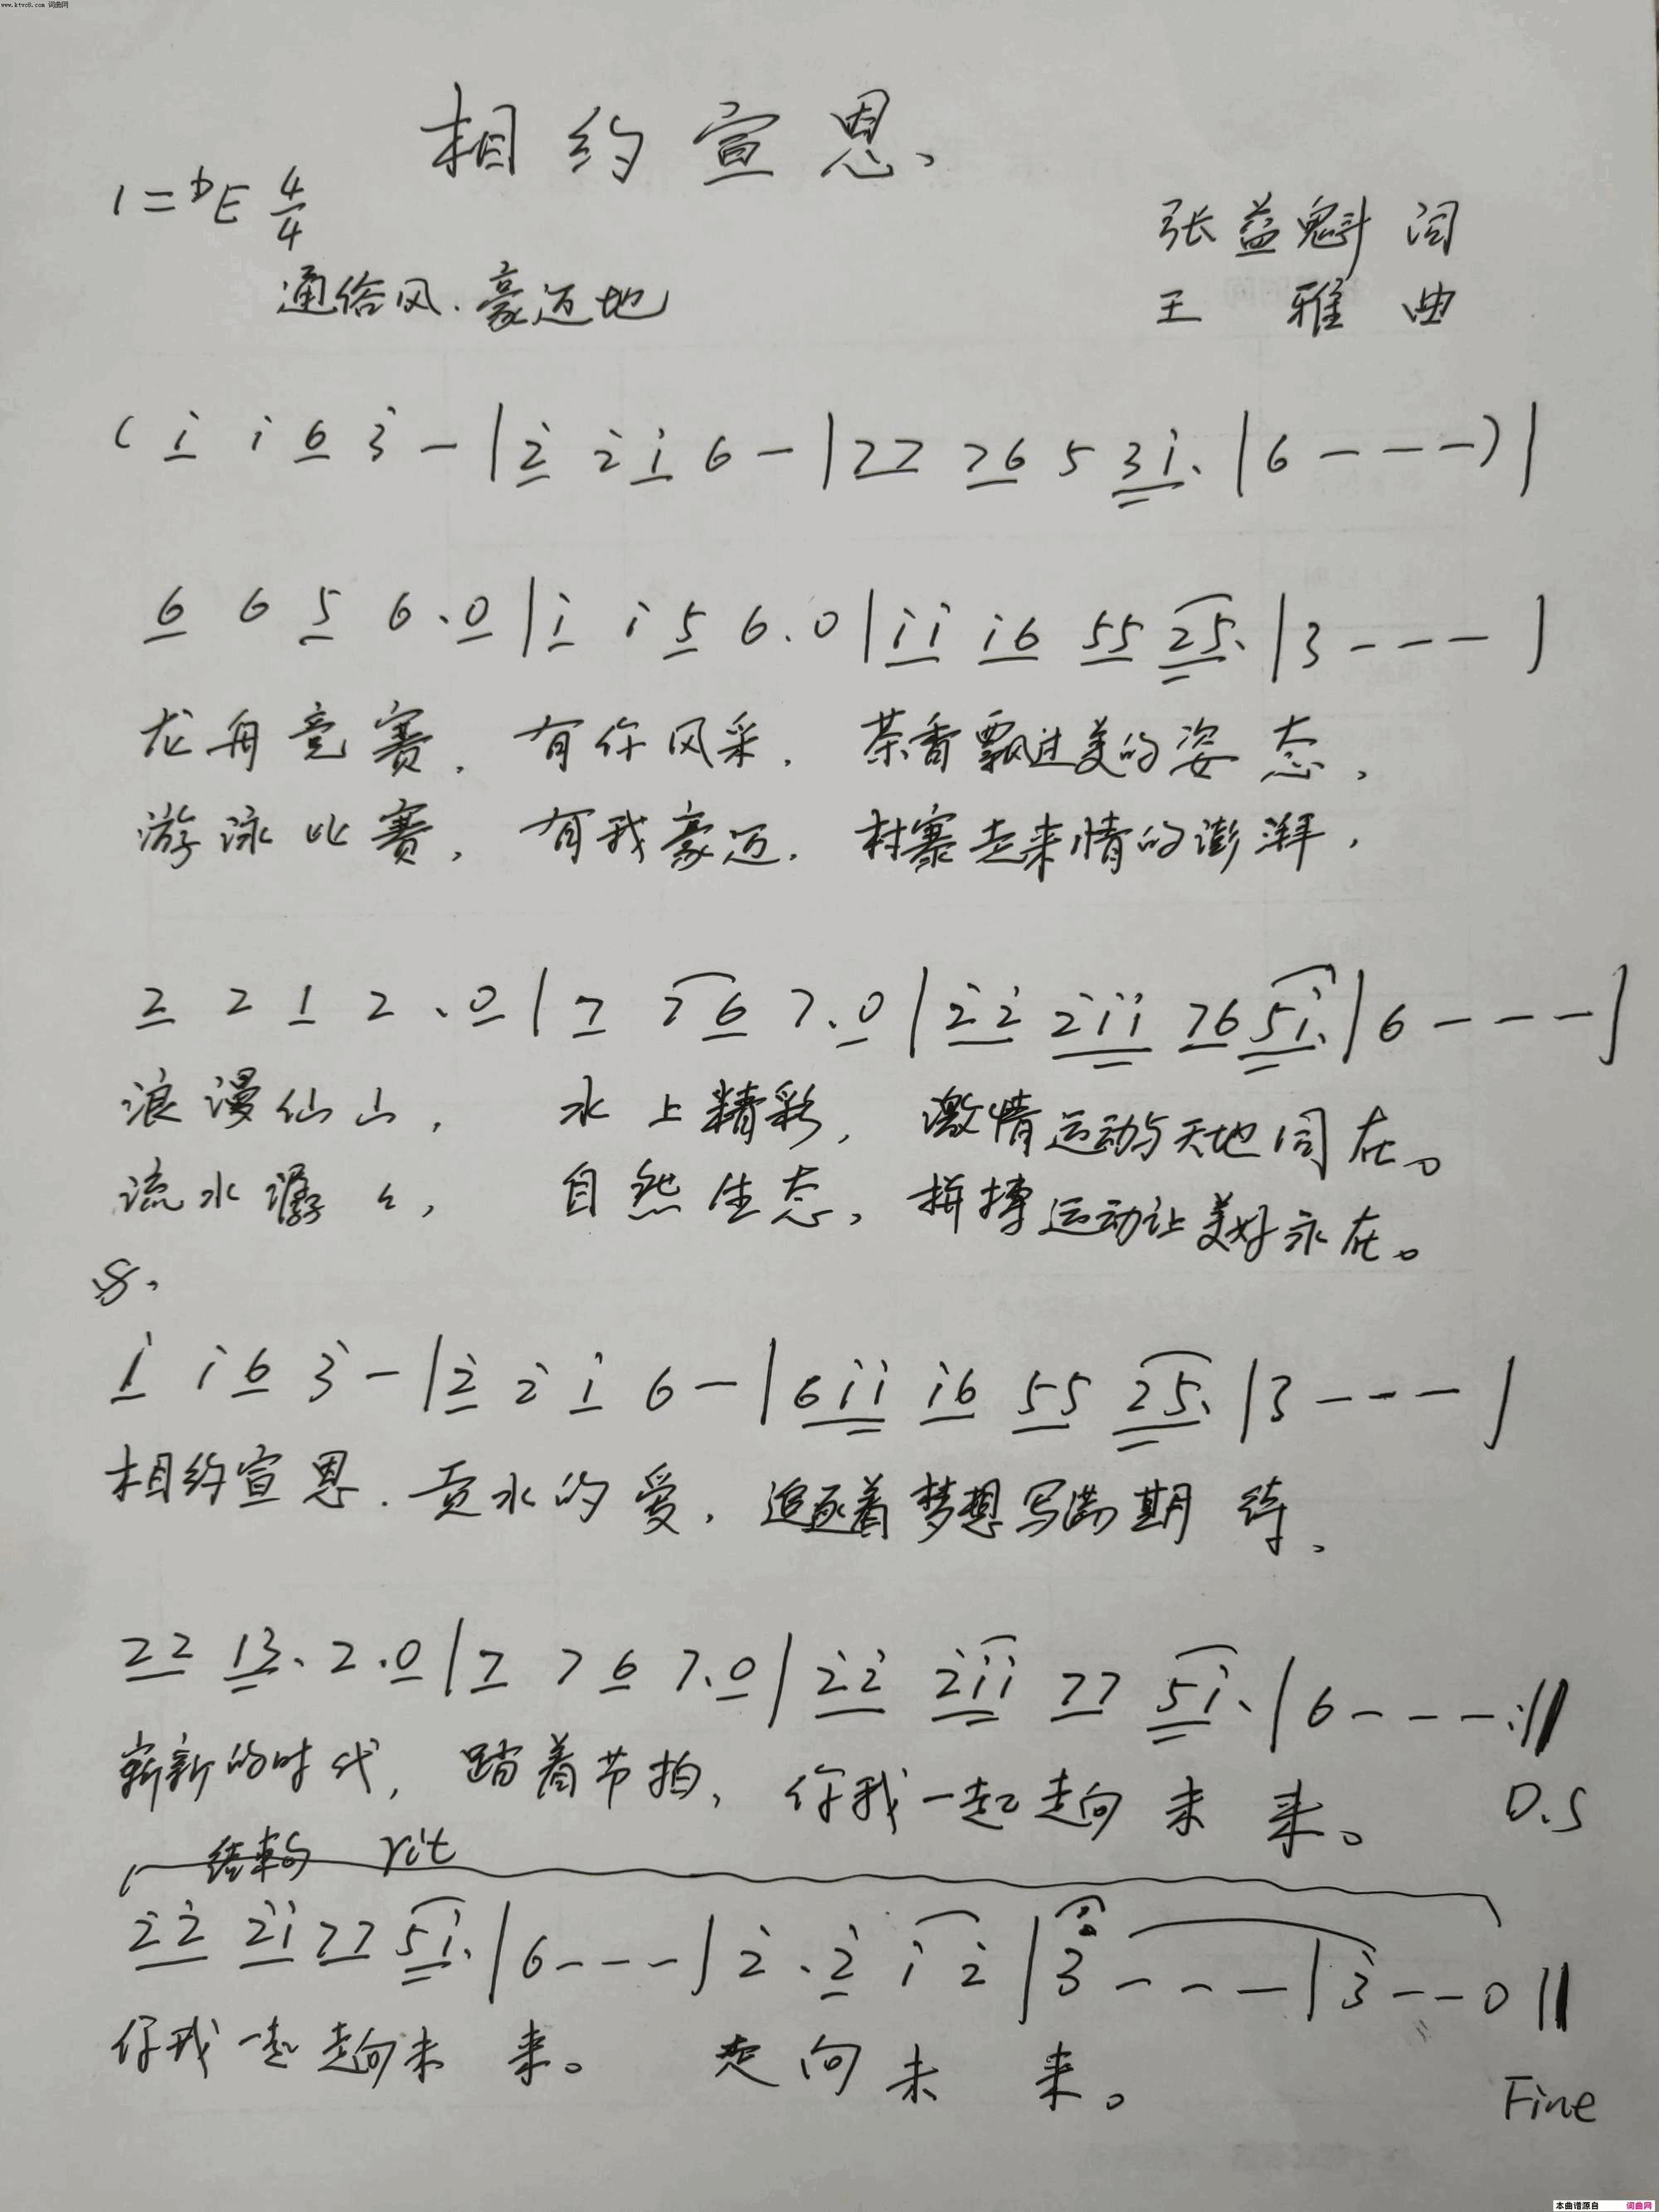 www.ktvc8.com 词曲网
相约宣恩、
1=♭E 4/4
张益魁 词
通俗风.豪迈地
王 雅 曲
( i i 6 3 - | 2 2 i 6 - | 22 76 5 3i. | 6 - - - ) |
6 6 5 6.0 | i i 5 6.0 | ii i6 55 25. | 3 - - - |
龙舟竞赛, 有你风采, 茶香飘过美的姿态,
游泳比赛, 有我豪迈, 村寨走来情的澎湃,
2 2 1 2.0 | 7 7 6 7.0 | 22 2ii 76 5i. | 6 - - - |
浪漫仙山, 水上精彩, 激情运动与天地同在。
流水潺々, 自然生态, 拼搏运动让美好永在。
𝄋.
i i 6 3 - | 2 2 i 6 - | 6ii i6 55 25. | 3 - - - |
相约宣恩. 贡水的爱, 追逐着梦想写满期待、
22 13. 2.0 | 7 7 6 7.0 | 22 2ii 77 5i. | 6 - - - :||
崭新的时代, 踏着节拍, 你我一起走向未来。 D.S
结束句 rit
22 2i 77 5i. | 6 - - - | 2 . 2 i 2 | 3 - - - | 3 - - 0 ||
你我一起走向未来。 走向未来。
Fine
本曲谱源自 词曲网